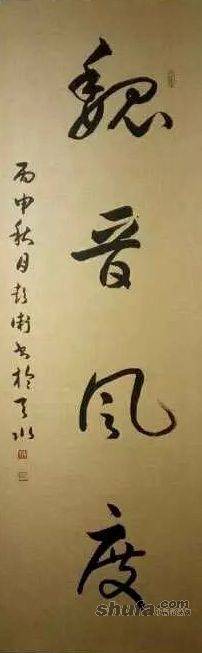 魏晋风度
丙申秋月彭衛书於天水
shufa.com